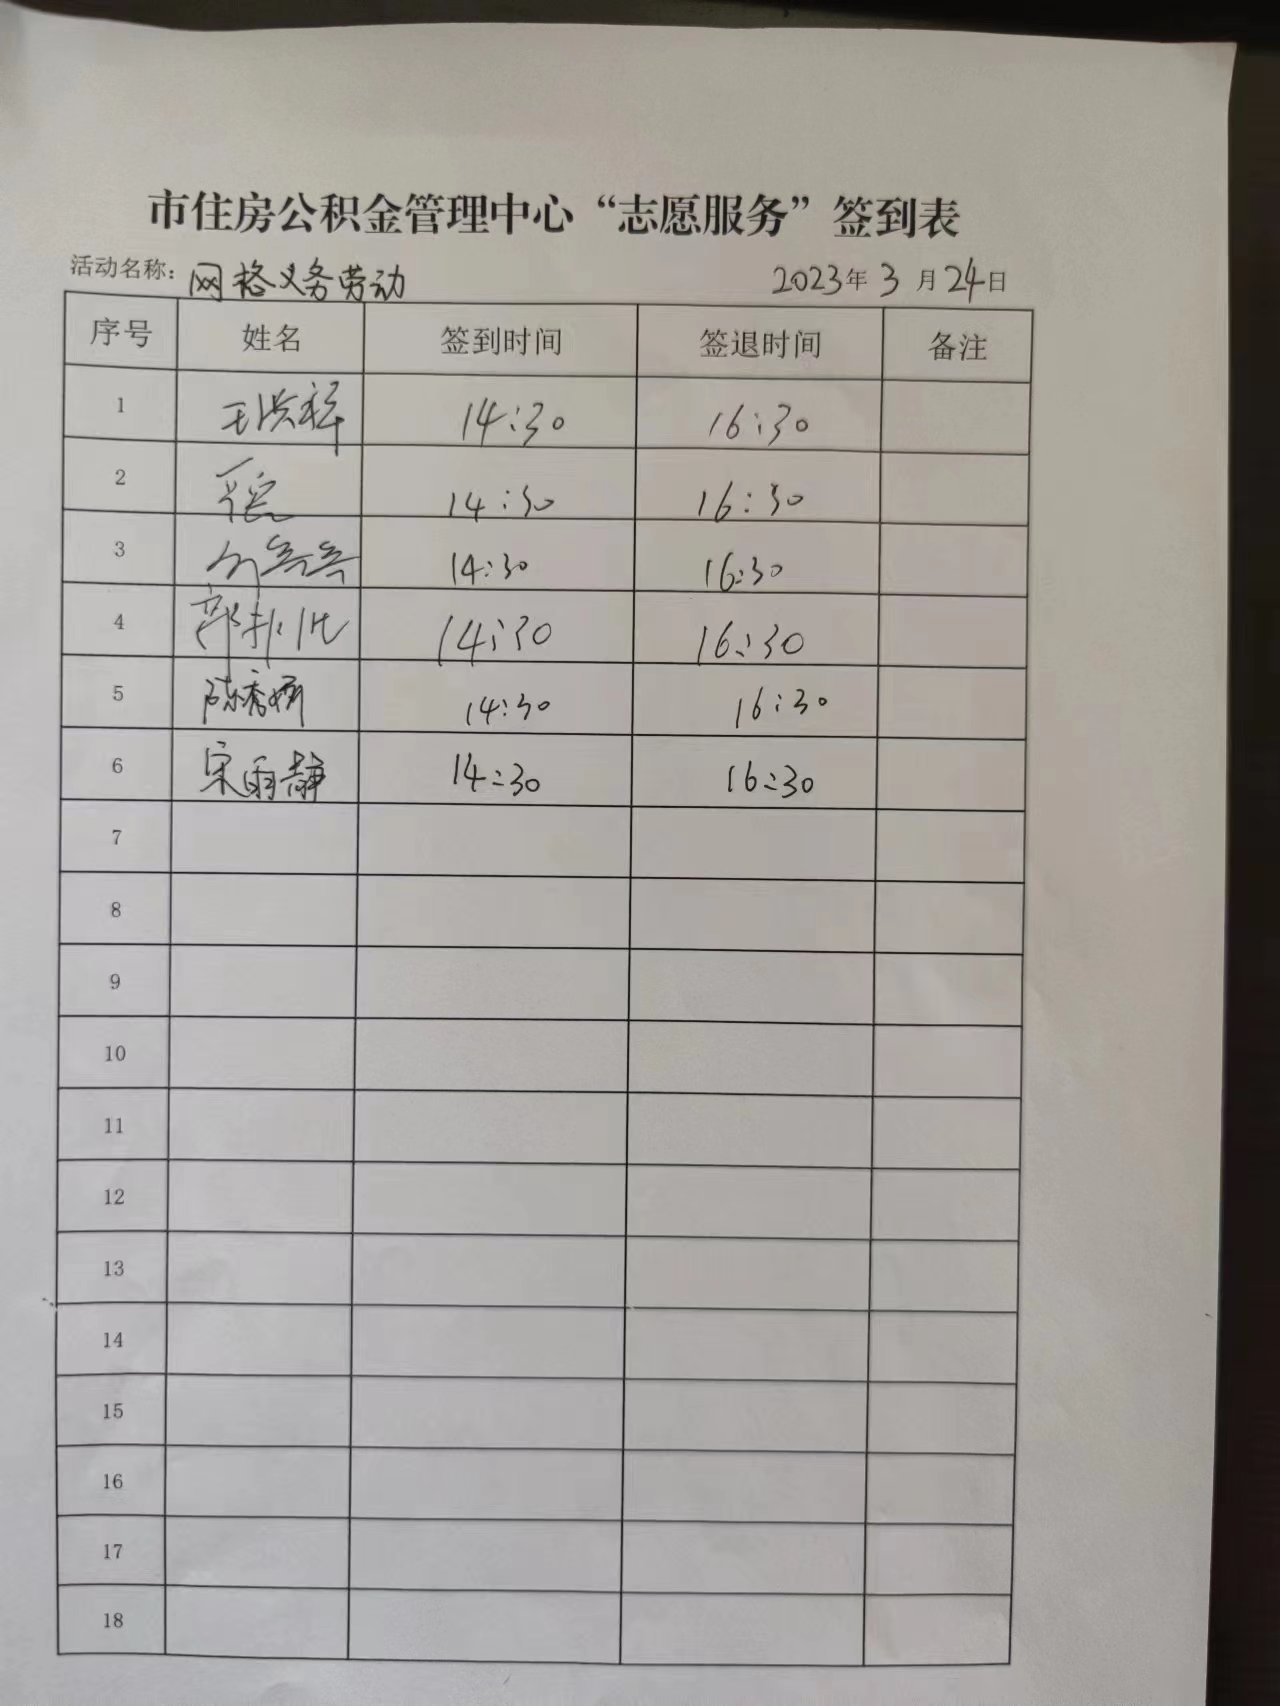 市住房公积金管理中心“志愿服务”签到表
活动名称：网格义务劳动 2023年3月24日
序号 姓名 签到时间 签退时间 备注
1 王洪祥 14:30 16:30
2 14:30 16:30
3 14:30 16:30
4 14:30 16:30
5 陈秀娟 14:30 16:30
6 宋雨静 14:30 16:30
7
8
9
10
11
12
13
14
15
16
17
18